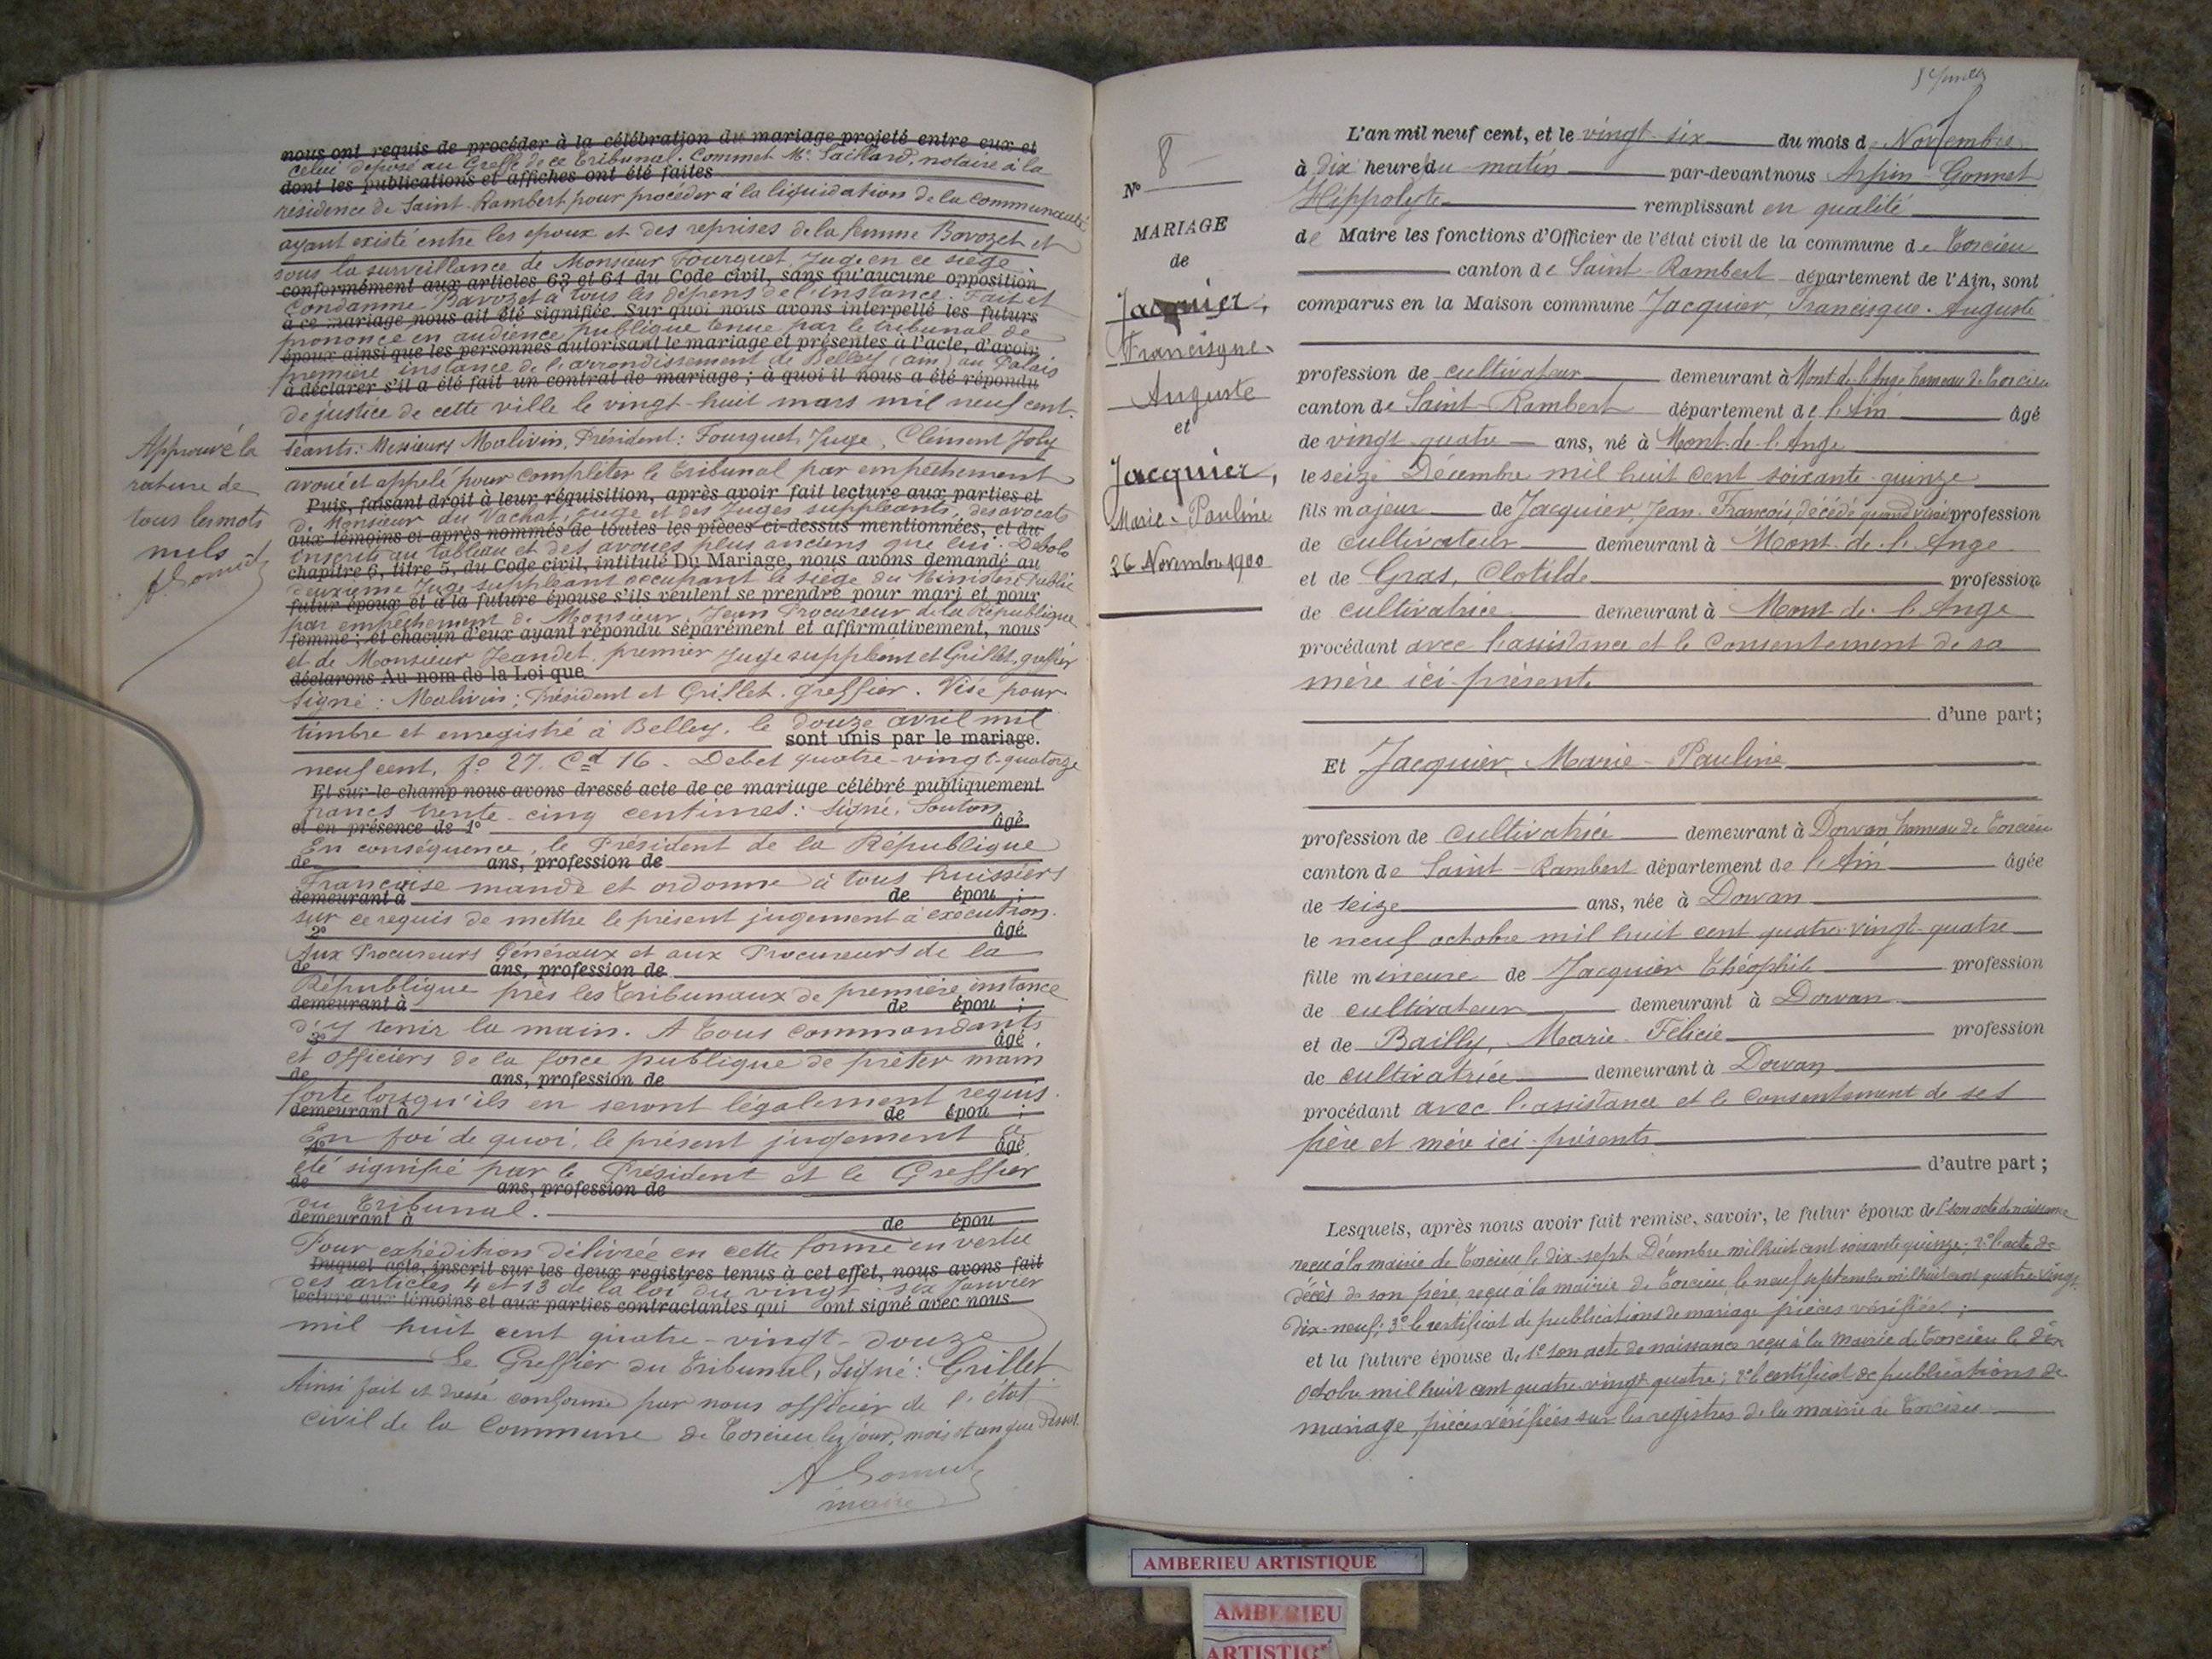 nous ont requis de procéder à la célébration du mariage projeté entre eux et
celui déposé au Greffe de ce Tribunal. Commet Me Saillard, notaire à la
dont les publications et affiches ont été faites
résidence de Saint-Rambert pour procéder à la liquidation de la communauté
ayant existé entre les époux et des reprises de la femme Bavozet et
sous la surveillance de Monsieur Fourquet, Juge en ce siège
conformément aux articles 63 et 64 du Code civil, sans qu'aucune opposition
Condamne Bavozet à tous les dépens de l'instance. Fait et
à ce mariage nous ait été signifiée. Sur quoi nous avons interpellé les futurs
prononcé en audience publique tenue par le tribunal de
époux ainsi que les personnes autorisant le mariage et présentes à l'acte, d'avoir
première instance de l'arrondissement de Belley (ain) au Palais
à déclarer s'il a été fait un contrat de mariage ; à quoi il nous a été répondu
de justice de cette ville le vingt-huit mars mil neuf cent.
Séants: Messieurs Malivin, Président: Fourquet, Juge, Clément Joly
avoué et appelé pour compléter le Tribunal par empêchement
Puis, faisant droit à leur réquisition, après avoir fait lecture aux parties et
de Monsieur du Vachat, juge et des Juges suppléants, des avocats
aux témoins et après nommés de toutes les pièces ci-dessus mentionnées, et du
inscrits au tableau et des avoués plus anciens que lui.
chapitre 6, titre 5, du Code civil, intitulé Du Mariage, nous avons demandé au
deuxième Juge suppléant occupant le siège du Ministère Public
futur époux et à la future épouse s'ils veulent se prendre pour mari et pour
par empêchement de Monsieur Jean Procureur de la République
femme ; et chacun d'eux ayant répondu séparément et affirmativement, nous
et de Monsieur Jeandet, premier Juge suppléant et Grillet, greffier
déclarons Au nom de la Loi que
Signé: Malivin; Président et Grillet, greffier. Visé pour
timbre et enregistré à Belley, le douze avril mil
sont unis par le mariage.
neuf cent, fo 27. Cd 16. Debet quatre-vingt-quatorze
Et sur le champ nous avons dressé acte de ce mariage célébré publiquement
francs trente-cinq centimes: Signé, Souton
et en présence de 1° âgé
En conséquence, le Président de la République
de ans, profession de
Française mande et ordonne à tous huissiers
demeurant à de épou ;
sur ce requis de mettre le présent jugement à exécution.
2° âgé
Aux Procureurs Généraux et aux Procureurs de la
de ans, profession de
République près les Tribunaux de première instance
demeurant à de épou ;
d'y tenir la main. A Tous commandants
3° âgé
et officiers de la force publique de prêter main
de ans, profession de
forte lorsqu'ils en seront légalement requis.
demeurant à de épou ;
En foi de quoi, le présent jugement a
âgé
été signifié par le Président et le Greffier
de ans, profession de
du Tribunal.
demeurant à de épou
Pour expédition délivrée en cette forme en vertu
Duquel acte, inscrit sur les deux registres tenus à cet effet, nous avons fait
des articles 4 et 13 de la loi du vingt-six Janvier
lecture aux témoins et aux parties contractantes qui ont signé avec nous
mil huit cent quatre-vingt-douze
Le Greffier du Tribunal, Signé: Grillet
Ainsi fait et dressé conforme par nous officier de l'état
civil de la Commune de Torcieu les jour, mois et an que dessus.
A Gonnet
maire
Approuvé la
rature de
tous les mots
nuls
A Gonnet
N° 8
MARIAGE
de
Jacquier,
Francisque-
Auguste
et
Jacquier,
Marie-Pauline
26 Novembre 1900
L'an mil neuf cent, et le vingt-six du mois de Novembre
à dix heure du matin par-devant nous Arpin-Gonnet
Hippolyte remplissant en qualité
de Maire les fonctions d'Officier de l'état civil de la commune de Torcieu
canton de Saint-Rambert département de l'Ain, sont
comparus en la Maison commune Jacquier, Francisque-Auguste
profession de cultivateur demeurant à Mont de l'Ange hameau de Torcieu
canton de Saint-Rambert département de l'Ain âgé
de vingt-quatre ans, né à Mont-de-l'Ange
le seize Décembre mil huit cent soixante-quinze
fils majeur de Jacquier, Jean-François, décédé quand vivait profession
de cultivateur demeurant à Mont-de-l'Ange
et de Gras, Clotilde profession
de cultivatrice demeurant à Mont-de-l'Ange
procédant avec l'assistance et le consentement de sa
mère ici présente
d'une part;
Et Jacquier, Marie-Pauline
profession de cultivatrice demeurant à Dorvan hameau de Torcieu
canton de Saint-Rambert département de l'Ain âgée
de seize ans, née à Dorvan
le neuf octobre mil huit cent quatre-vingt-quatre
fille mineure de Jacquier Théophile profession
de cultivateur demeurant à Dorvan
et de Bailly, Marie-Félicie profession
de cultivatrice demeurant à Dorvan
procédant avec l'assistance et le consentement de ses
père et mère ici présents
d'autre part ;
Lesquels, après nous avoir fait remise, savoir, le futur époux de 1° son acte de naissance
reçu à la mairie de Torcieu le dix-sept Décembre mil huit cent soixante quinze; 2° l'acte de
décès de son père, reçu à la mairie de Torcieu, le neuf septembre mil huit cent quatre-vingt-
dix-neuf; 3° le certificat de publications de mariage pièces vérifiées;
et la future épouse de 1° son acte de naissance reçu à la mairie de Torcieu le dix
octobre mil huit cent quatre-vingt quatre; 2° le certificat de publications de
mariage, pièces vérifiées sur les registres de la mairie de Torcieu
AMBERIEU ARTISTIQUE
AMBERIEU